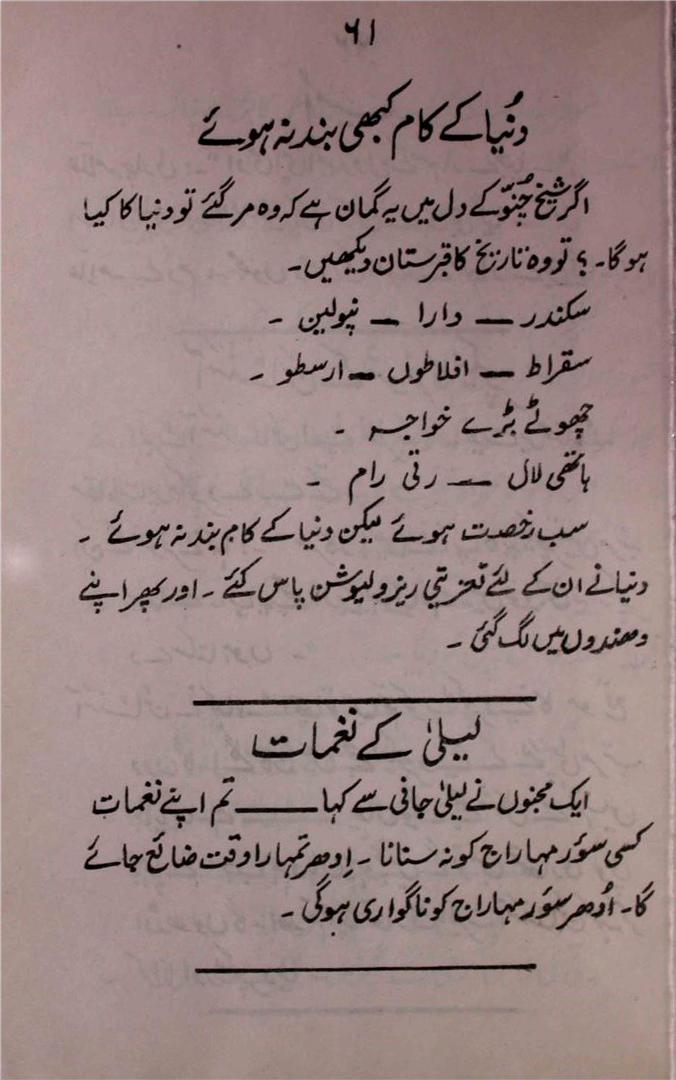 ۶۱
دُنیا کے کام کبھی بند نہ ہوئے
اگر شیخ چُنّو کے دل میں یہ گمان ہے کہ وہ مر گئے تو دنیا کا کیا
ہو گا۔ ؟ تو وہ تاریخ کا قبرستان دیکھیں۔
سکندر — دارا — نپولین ۔
سقراط — افلاطوں — ارسطو ۔
چھوٹے بڑے خواجہ ۔
ہاتھی لال — رتی رام ۔
سب رخصت ہوئے لیکن دنیا کے کام بند نہ ہوئے ۔
دنیا نے ان کے لئے تعزیتی ریزولیوشن پاس کئے ۔ اور پھر اپنے
دھندوں میں لگ گئی ۔
لیلیٰ کے نغمات
ایک مجنوں نے لیلیٰ جانی سے کہا —— تم اپنے نغمات
کسی سؤر مہاراج کو نہ سنانا ۔ اِدھر تمہارا وقت ضائع جائے
گا۔ اُدھر سؤر مہاراج کو ناگواری ہوگی ۔